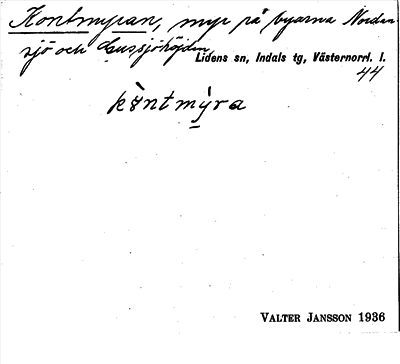 Kontmyran, myr på byarna Norden
sjö och Lussjöhöjden
Lidens sn, Indals tg, Västernorrl. l.
44
kòntmýra
VALTER JANSSON 1936